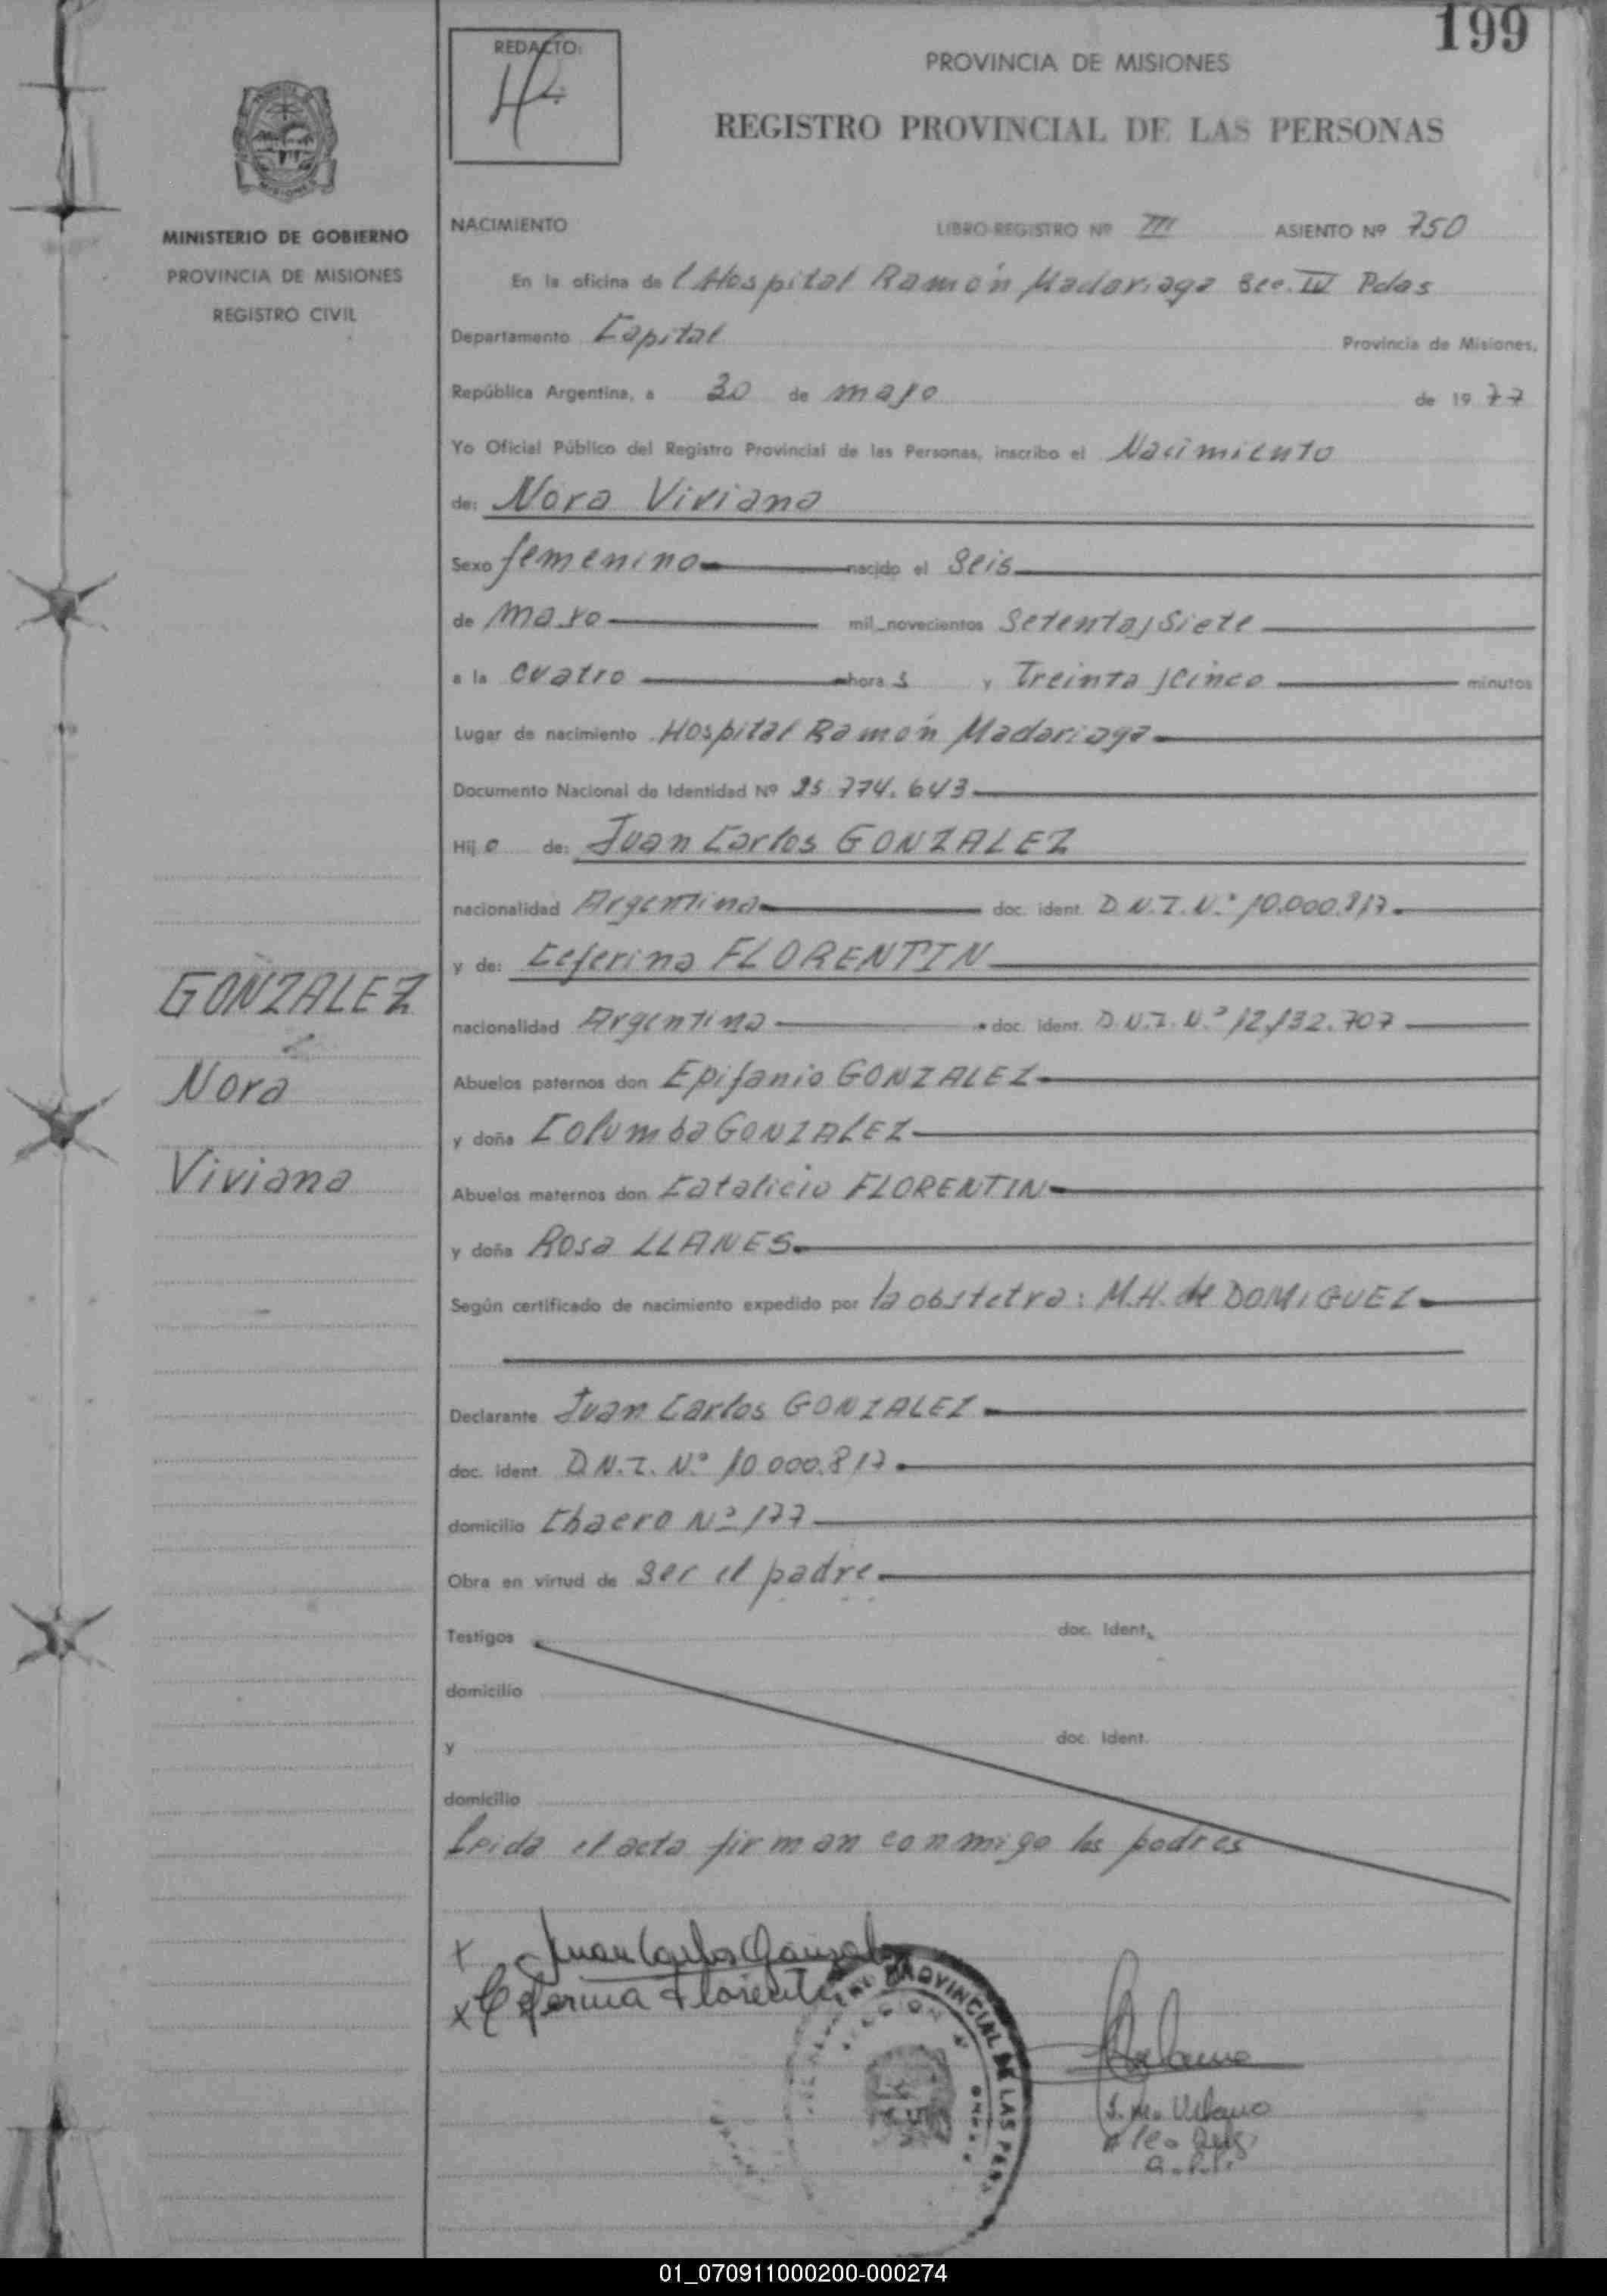 199
REDACTO:
PROVINCIA DE MISIONES
REGISTRO PROVINCIAL DE LAS PERSONAS
MISIONES
MINISTERIO DE GOBIERNO
PROVINCIA DE MISIONES
REGISTRO CIVIL
NACIMIENTO LIBRO-REGISTRO Nº III ASIENTO Nº 750
En la oficina de l Hospital Ramón Madariaga Sec. IV Pdas
Departamento Capital Provincia de Misiones,
República Argentina, a 30 de mayo de 19 77
Yo Oficial Público del Registro Provincial de las Personas, inscribo el Nacimiento
de: Nora Viviana
Sexo femenino nacido el Seis
de mayo mil novecientos Setenta y Siete
a la cuatro hora s y Treinta y Cinco minutos
Lugar de nacimiento Hospital Ramón Madariaga
Documento Nacional de Identidad Nº 25.774.643
Hij o de: Juan Carlos GONZALEZ
nacionalidad Argentina doc. ident. D.N.I. N.º 10.000.817
y de: Ceferina FLORENTIN
nacionalidad Argentina doc. ident. D.N.I. N.º 12.132.707
GONZALEZ
Nora
Viviana
Abuelos paternos don Epifanio GONZALEZ
y doña Columba GONZALEZ
Abuelos maternos don Catalicio FLORENTIN
y doña Rosa LLANES
Según certificado de nacimiento expedido por la obstetra: M.H. de DOMIGUEZ
Declarante Juan Carlos GONZALEZ
doc. ident. D.N.I. N.º 10.000.817
domicilio Chacro Nº 177
Obra en virtud de ser el padre
Testigos doc. Ident.
domicilio
y doc. Ident.
domicilio
Leida el acta firman conmigo los padres
x Juan Carlos Gonzalez
x Ceferina Florentin
PROVINCIAL DE LAS PER
01_070911000200-000274